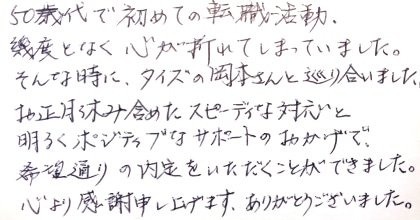 50歳代で初めての転職活動、
幾度となく心が折れてしまっていました。
そんな時に、タイズの岡本さんと巡り合いました。
お正月休み含めたスピーディな対応と
明るくポジティブなサポートのおかげで、
希望通りの内定をいただくことができました。
心より感謝申し上げます、ありがとうございました。